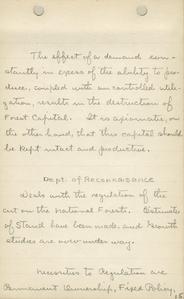 The effect of a demand con-
stantly in excess of the ability to pro-
duce, coupled with uncontrolled utili-
zation, results in the destruction of
Forest Capital. It is axiomatic, on
the other hand, that this capital should
be kept intact and productive.
Dept. of Reconnaissance
Deals with the regulation of the
cut on the National Forests. Estimates
of Stand have been made, and Growth
studies are now under way.
Necessities to Regulation are
Permanent Ownership, Fixed Policy,